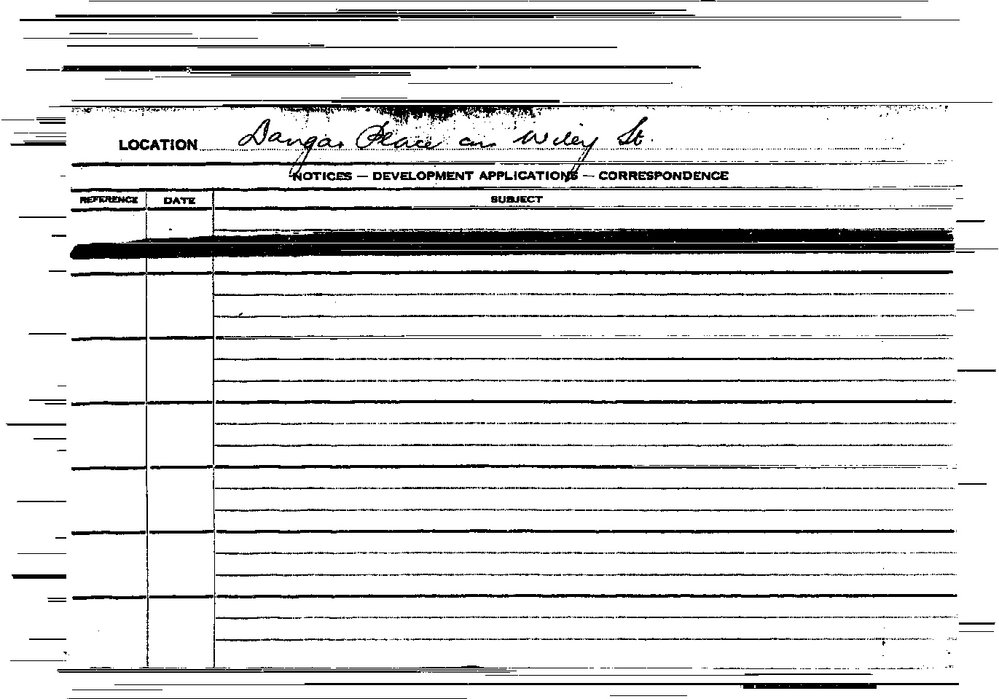 LOCATION Dangar Place cnr Wiley St.
NOTICES — DEVELOPMENT APPLICATIONS — CORRESPONDENCE
REFERENCE DATE SUBJECT